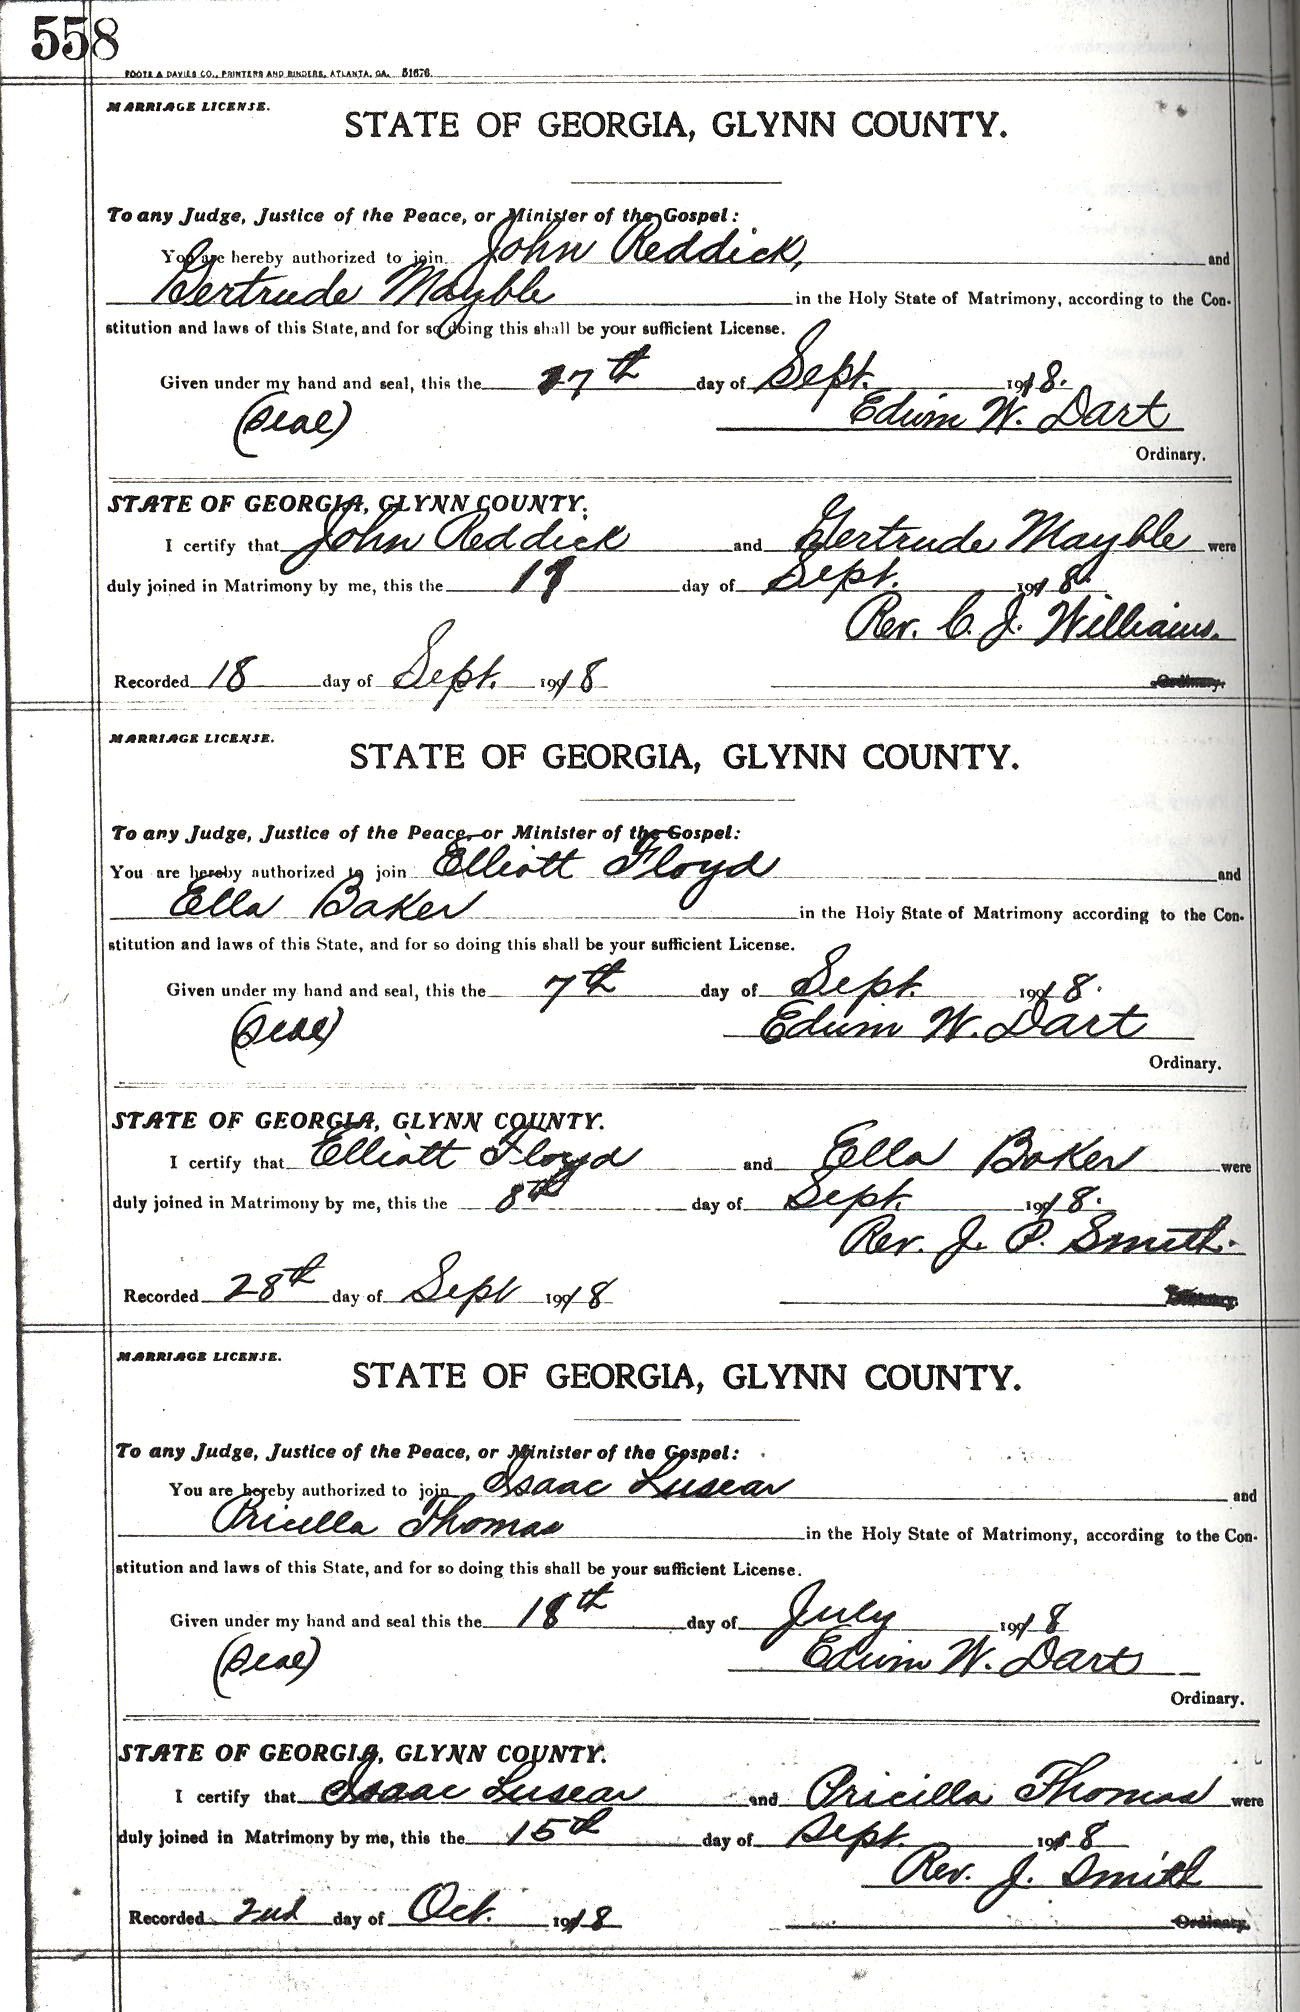 558
FOOTE & DAVIES CO., PRINTERS AND BINDERS, ATLANTA, GA. 51676.
MARRIAGE LICENSE.
STATE OF GEORGIA, GLYNN COUNTY.
To any Judge, Justice of the Peace, or Minister of the Gospel:
You are hereby authorized to join John Reddick, and
Gertrude Mayble in the Holy State of Matrimony, according to the Con-
stitution and laws of this State, and for so doing this shall be your sufficient License.
Given under my hand and seal, this the 17th day of Sept. 1918.
(Seal) Edwin W. Dart
Ordinary.
STATE OF GEORGIA, GLYNN COUNTY.
I certify that John Reddick and Gertrude Mayble were
duly joined in Matrimony by me, this the day of Sept. 1918.
Rev. C. J. Williams.
Recorded 18 day of Sept. 1918
Ordinary.
MARRIAGE LICENSE.
STATE OF GEORGIA, GLYNN COUNTY.
To any Judge, Justice of the Peace, or Minister of the Gospel:
You are hereby authorized to join Elliott Floyd and
Ella Baker in the Holy State of Matrimony according to the Con-
stitution and laws of this State, and for so doing this shall be your sufficient License.
Given under my hand and seal, this the 7th day of Sept. 1918.
(Seal) Edwin W. Dart
Ordinary.
STATE OF GEORGIA, GLYNN COUNTY.
I certify that Elliott Floyd and Ella Baker were
duly joined in Matrimony by me, this the 8th day of Sept. 1918.
Rev. J. P. Smith.
Recorded 28th day of Sept 1918
MARRIAGE LICENSE.
STATE OF GEORGIA, GLYNN COUNTY.
To any Judge, Justice of the Peace, or Minister of the Gospel:
You are hereby authorized to join Isaac Lusear and
Pricella Thomas in the Holy State of Matrimony, according to the Con-
stitution and laws of this State, and for so doing this shall be your sufficient License.
Given under my hand and seal this the 18th day of July 1918
(Seal) Edwin W. Dart
Ordinary.
STATE OF GEORGIA, GLYNN COUNTY.
I certify that Isaac Lusear and Pricilla Thomas were
duly joined in Matrimony by me, this the 15th day of Sept. 1918
Rev. J. Smith
Recorded 2nd day of Oct. 1918
Ordinary.